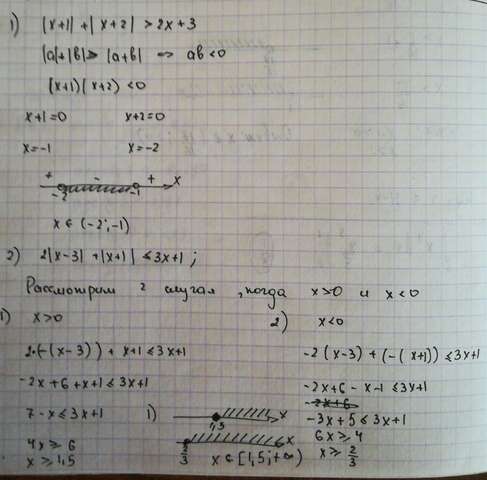 1) |x+1| + |x+2| > 2x+3
|a|+|b| > |a+b| => ab<0
(x+1)(x+2) <0
x+1=0 x+2=0
x=-1 x=-2
+ - + x
-2 -1
x ∈ (-2;-1)
2) 2|x-3| + |x+1| ≤ 3x+1;
Рассмотрим 2 случая, когда x>0 и x<0
1) x>0
2·(-(x-3)) + x+1 ≤ 3x+1
-2x+6+x+1 ≤ 3x+1
7-x ≤ 3x+1
4x ≥ 6
x ≥ 1,5
2) x<0
-2(x-3) + (-(x+1)) ≤ 3x+1
-2x+6 -x-1 ≤ 3x+1
-2x+6
-3x+5 ≤ 3x+1
6x ≥ 4
x ≥ 2/3
1) x
1,5
x
2/3
x ∈ [1,5;+∞)